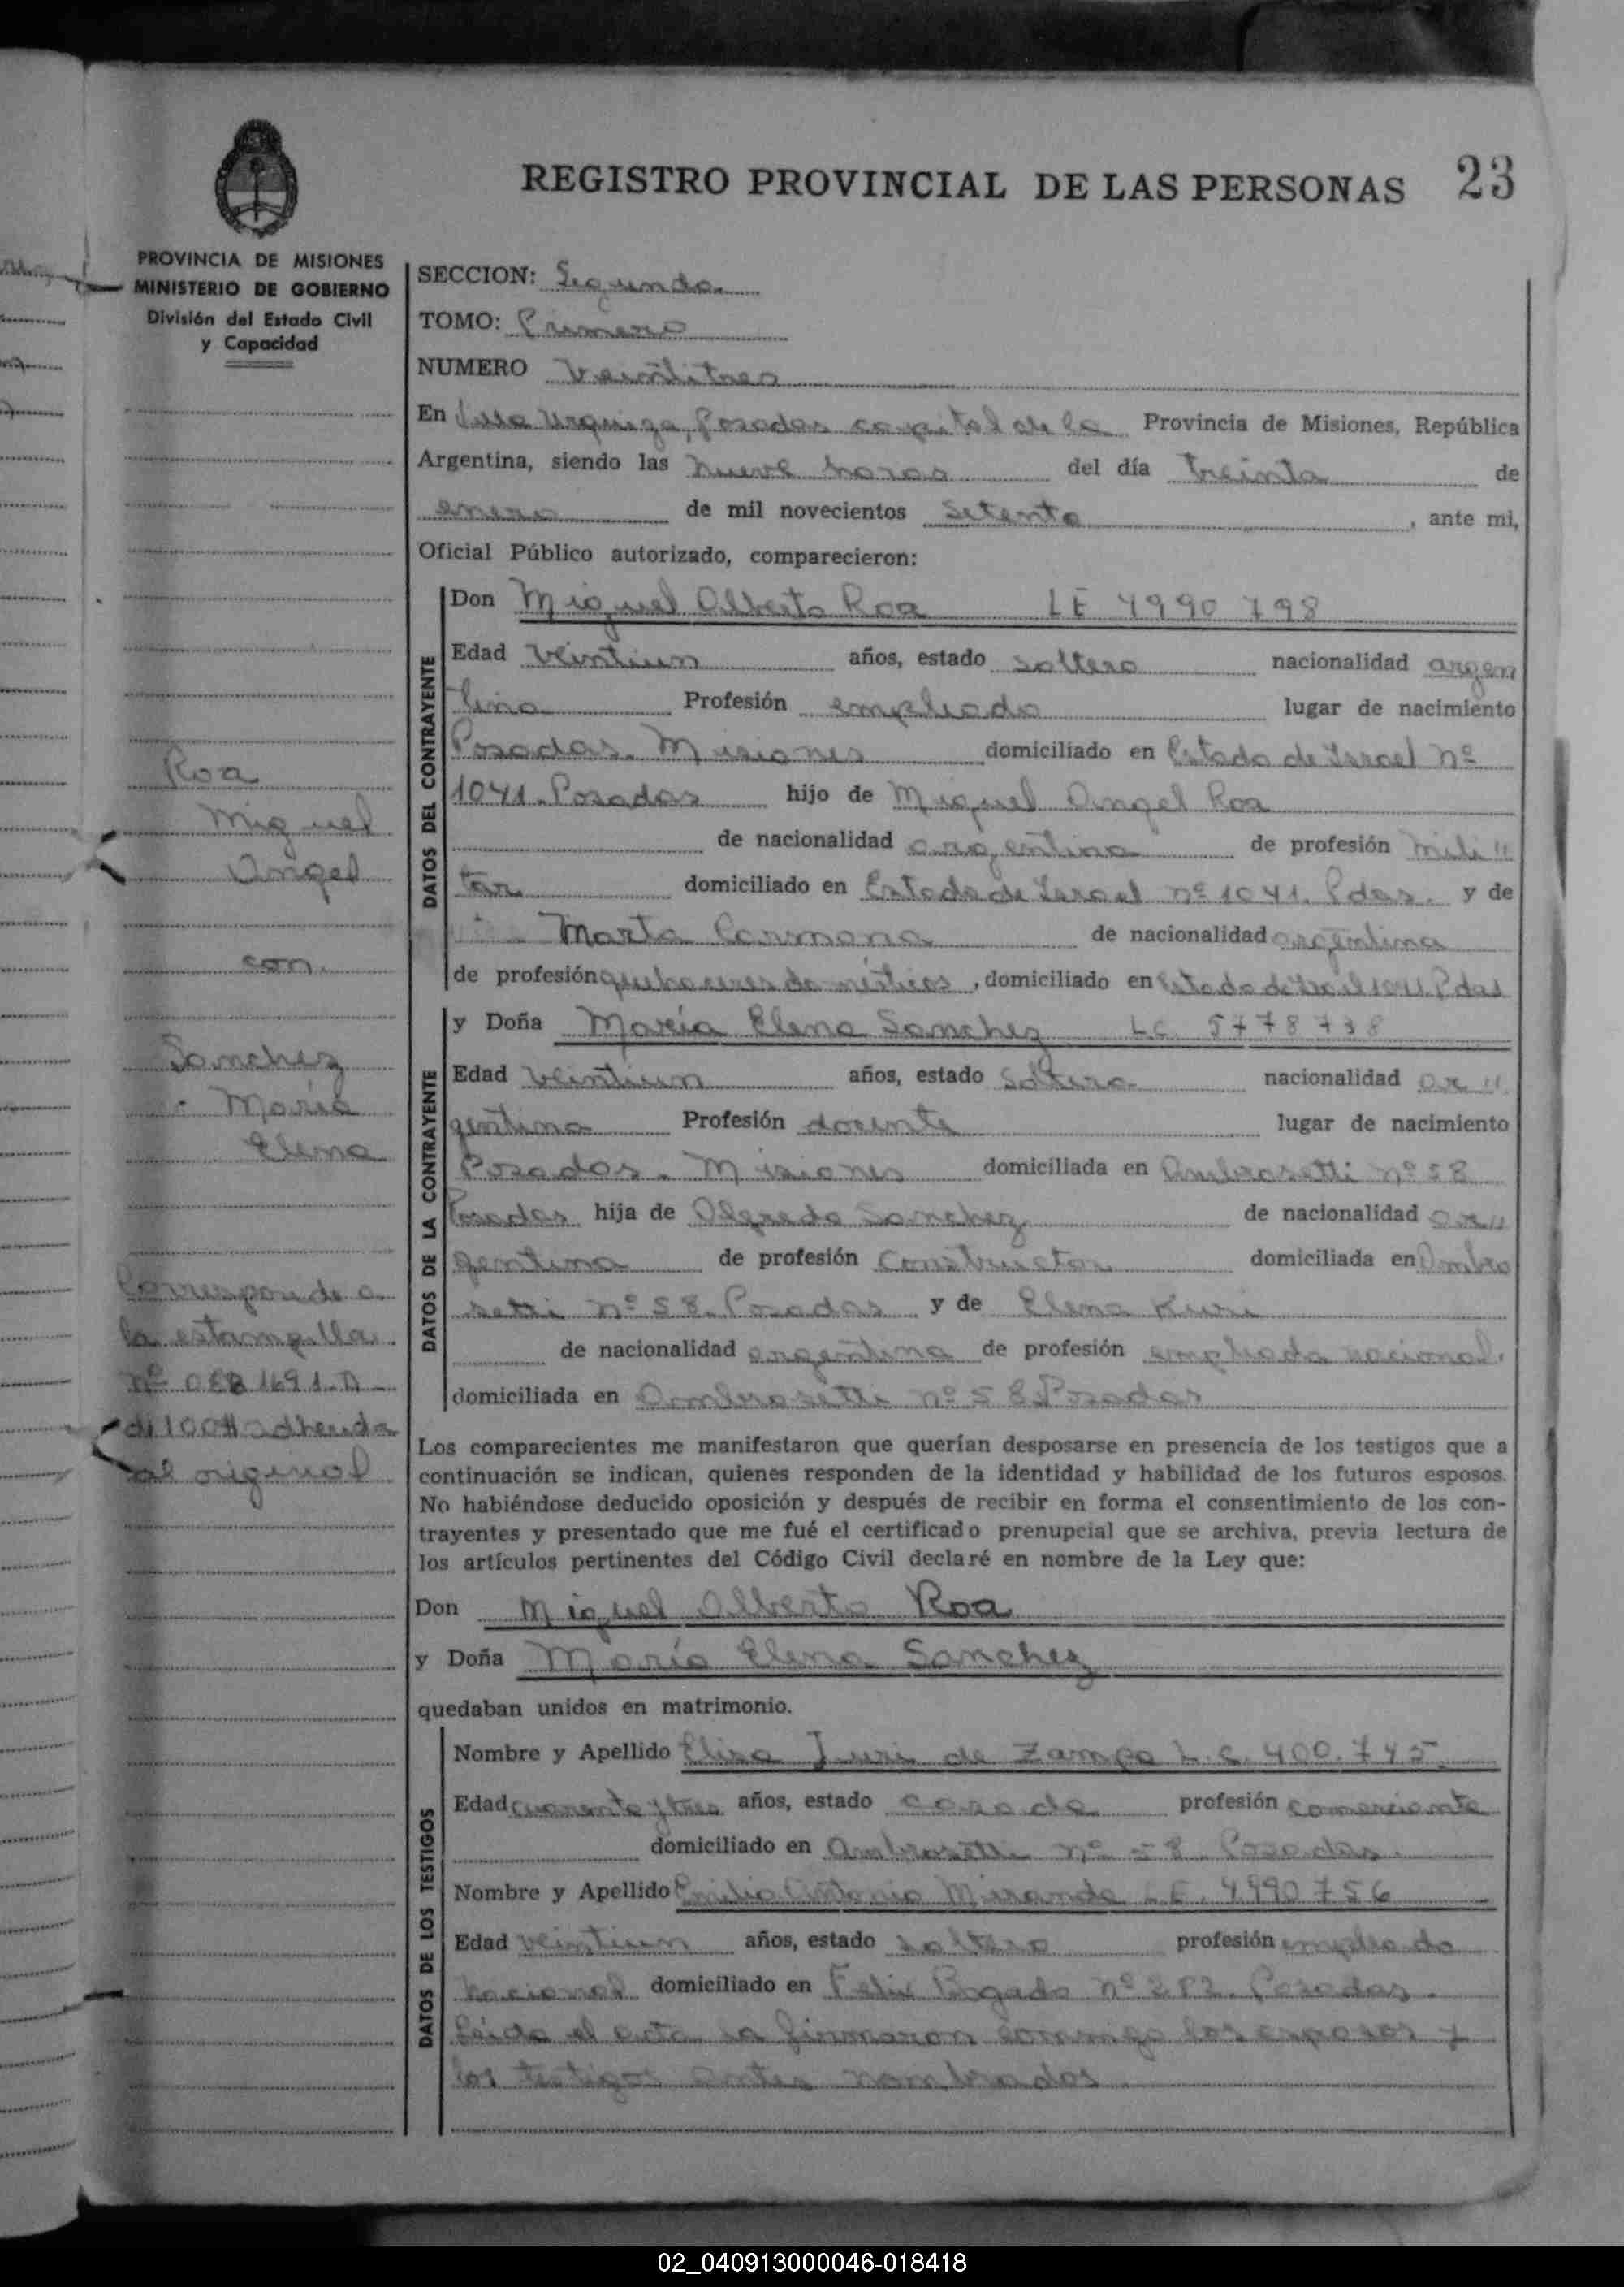 REGISTRO PROVINCIAL DE LAS PERSONAS 23
PROVINCIA DE MISIONES
MINISTERIO DE GOBIERNO
División del Estado Civil
y Capacidad
SECCION: Segunda
TOMO: Primero
NUMERO Veintitres
En Villa Urquiza, Posadas capital de la Provincia de Misiones, República
Argentina, siendo las nueve horas del día treinta de
enero de mil novecientos setenta, ante mi,
Oficial Público autorizado, comparecieron:
DATOS DEL CONTRAYENTE
Don Miguel Alberto Roa LE 7990798
Edad veintiun años, estado soltero nacionalidad argen
tina Profesión empleado lugar de nacimiento
Posadas. Misiones domiciliado en Estado de Israel Nº
1041. Posadas hijo de Miguel Angel Roa
de nacionalidad argentina de profesión mili"
tar domiciliado en Estado de Israel nº 1041. Pdas. y de
Marta Carmona de nacionalidad argentina
de profesión quehaceres domésticos, domiciliado en Estado de Israel 1041 Pdas
Roa
Miguel
Angel
con
Sanchez
María
Elena
DATOS DE LA CONTRAYENTE
y Doña María Elena Sanchez LC. 5778738
Edad veintiun años, estado soltera nacionalidad ar"
gentina Profesión docente lugar de nacimiento
Posadas. Misiones domiciliada en Ambrosetti nº 58
Posadas hija de Alfredo Sanchez de nacionalidad ar"
gentina de profesión constructor domiciliada en Ambro
setti nº 58. Posadas y de Elena Kuri
de nacionalidad argentina de profesión empleada nacional.
domiciliada en Ambrosetti nº 58 Posadas
Corresponde a
la estampilla
Nº 1691.
de 100 adherida
al original
Los comparecientes me manifestaron que querían desposarse en presencia de los testigos que a
continuación se indican, quienes responden de la identidad y habilidad de los futuros esposos.
No habiéndose deducido oposición y después de recibir en forma el consentimiento de los con-
trayentes y presentado que me fué el certificado prenupcial que se archiva, previa lectura de
los artículos pertinentes del Código Civil declaré en nombre de la Ley que:
Don Miguel Alberto Roa
y Doña María Elena Sanchez
quedaban unidos en matrimonio.
DATOS DE LOS TESTIGOS
Nombre y Apellido Elisa Juri de Zampa L.C. 400.745
Edad cuarenta y tres años, estado casada profesión comerciante
domiciliado en Ambrosetti nº 58. Posadas.
Nombre y Apellido Emilio Antonio Miranda L.E. 7990756
Edad veintiun años, estado soltero profesión empleado
nacional domiciliado en Felix Bogado nº 282. Posadas.
Leida el acta la firmaron conmigo los esposos y
los testigos antes nombrados
02_040913000046-018418